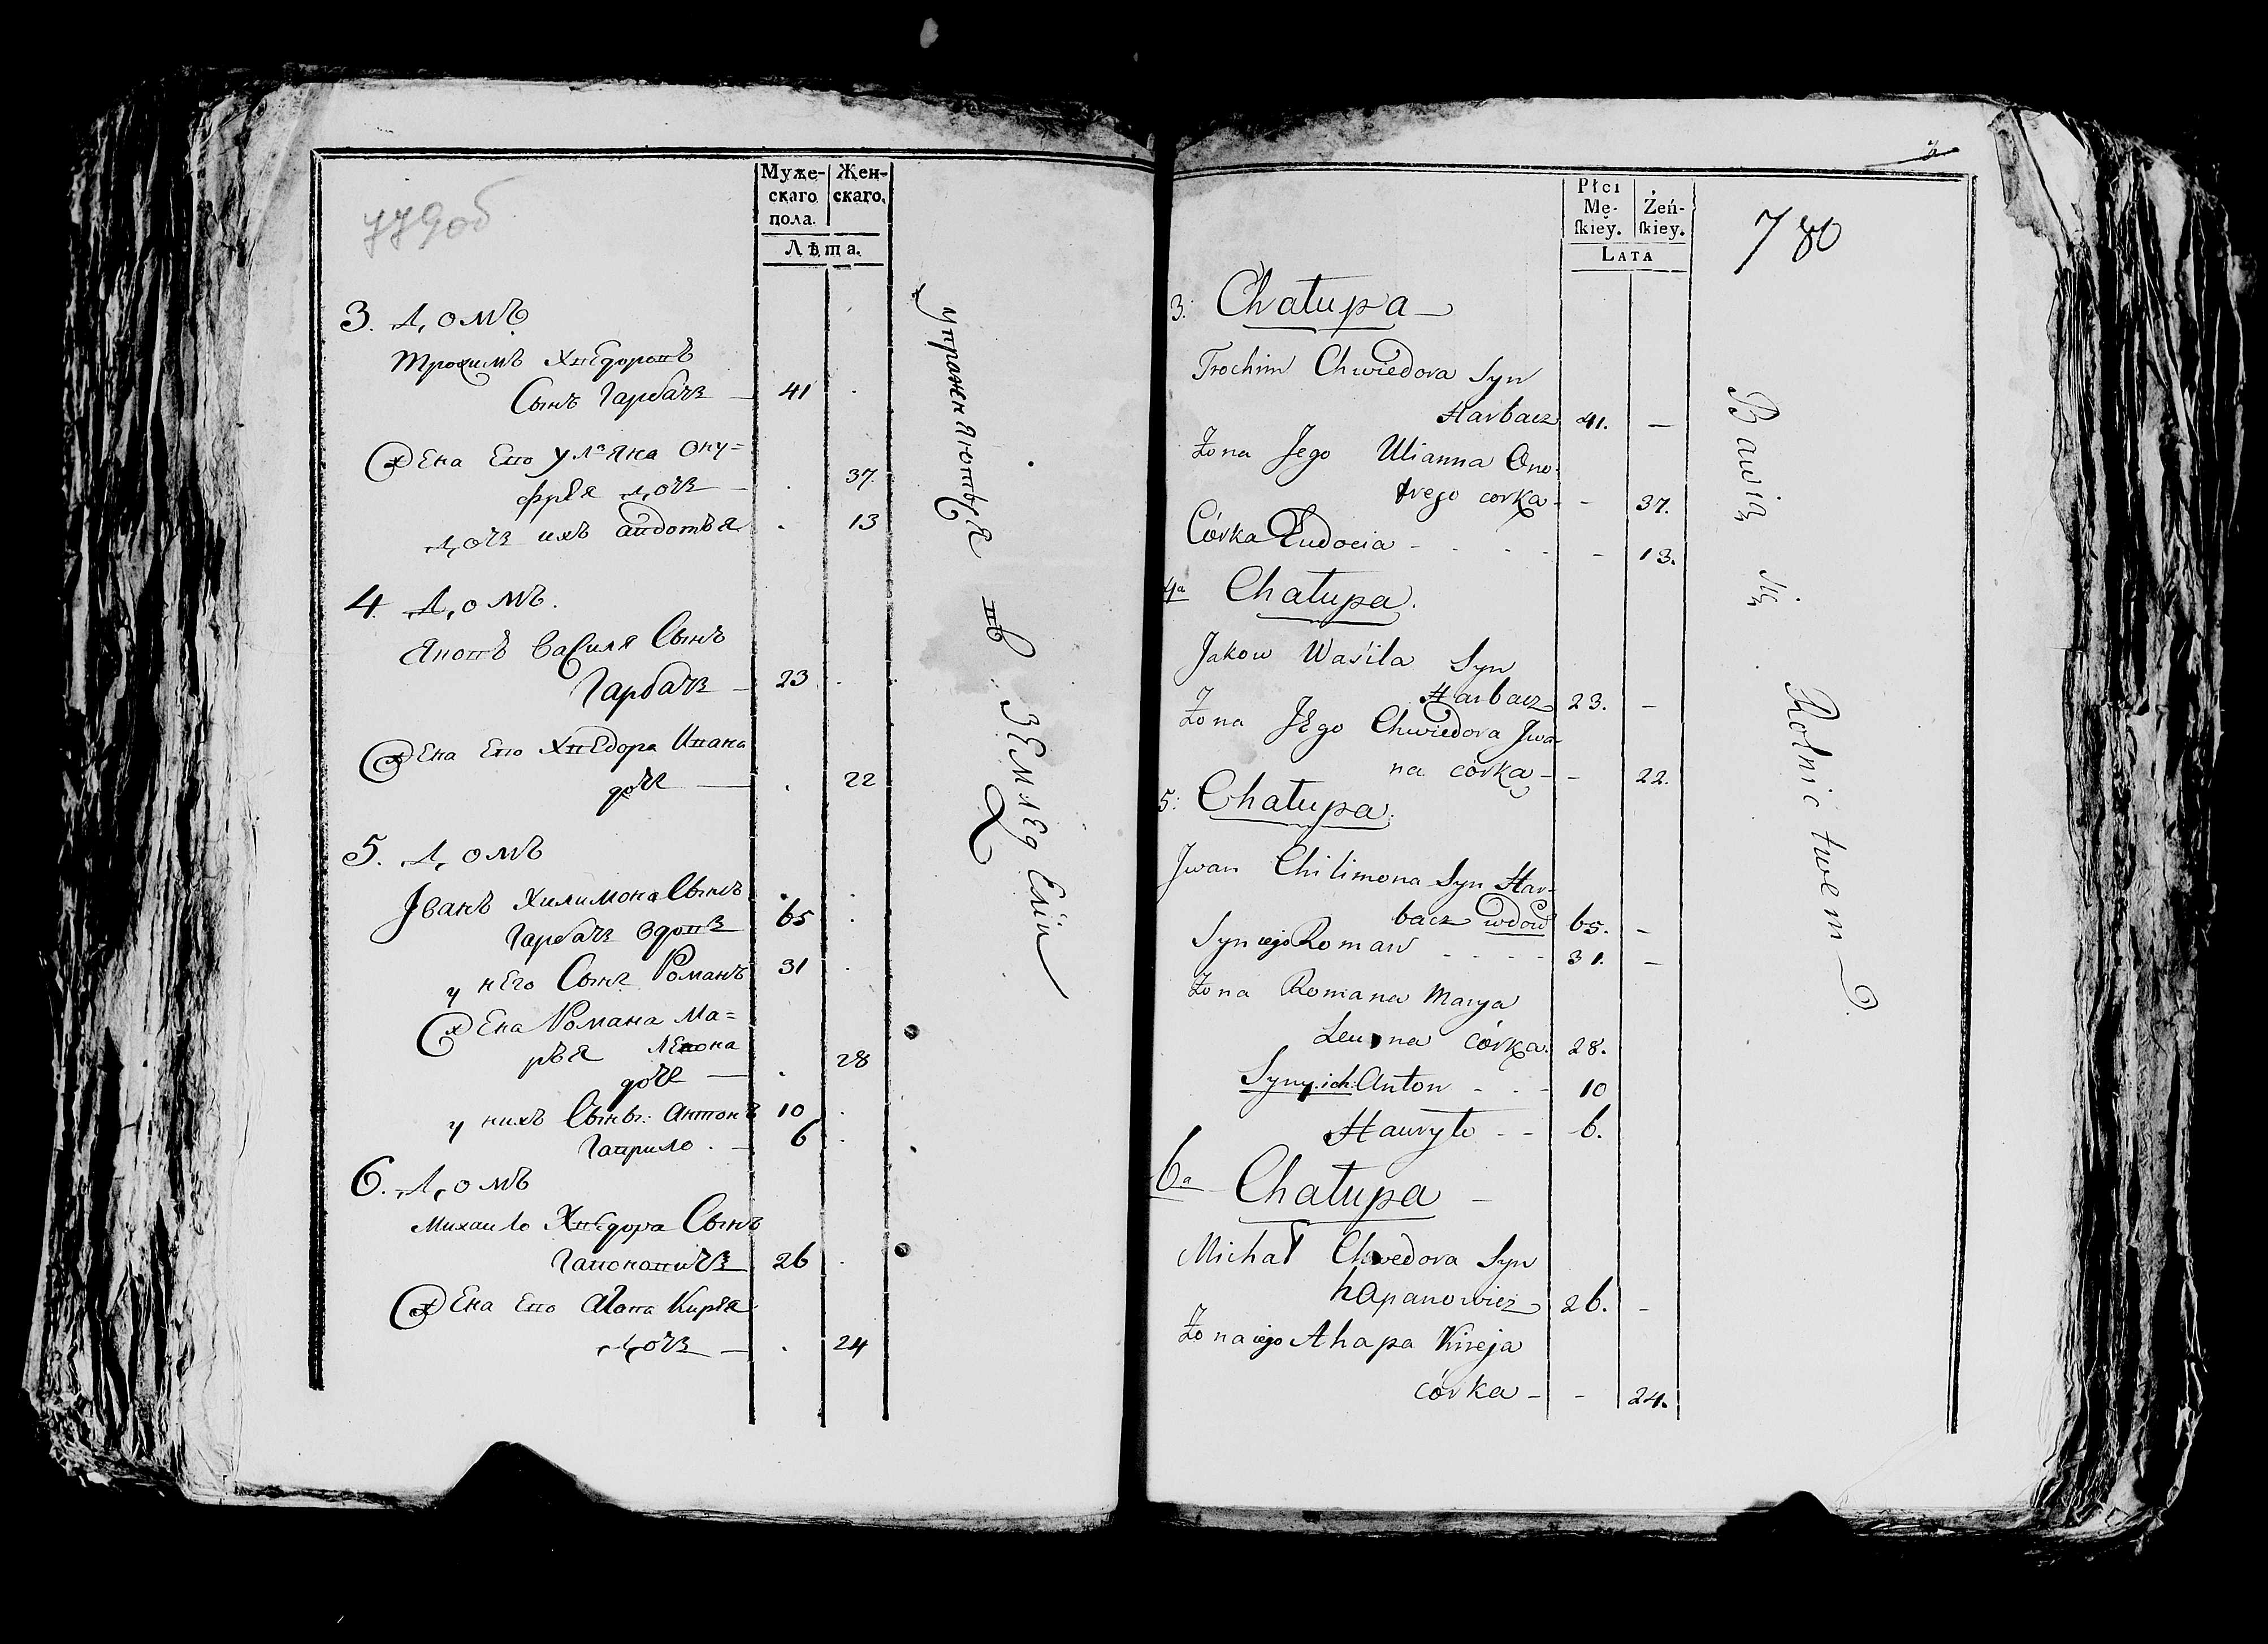 779об
Муже-
скаго
пола.
Жен-
скаго.
Лѣта.
3. Домъ
Трохимъ Хведоровъ
Сынъ Гарбачъ — 41 .
Жена Его Ульяна Ону=
фрѣя дочь — . 37.
дочь ихъ Авдотья . 13
4. Домъ.
Яковъ Василя Сынъ
Гарбачъ — 23 .
Жена Его Хведора Ивана
дочь — . 22
5. Домъ
Іванъ Хилимона Сынъ . .
Гарбачъ вдовъ 65 .
у него Сынъ Романъ 31 .
Жена Романа Ма=
рья Левона
дочь — . 28
у нихъ Сыны: Антонъ 10 .
Гаврило . — 6 .
6. Домъ
Михаило Хведора Сынъ
Гапоновичъ 26 .
Жена Его Агапа Кирѣя
дочь — . 24
упраженяютъся въ земледеліи
3
780
Płci
Mę-
ſkiey.
Żeń-
ſkiey.
LATA
3. Chałupa —
Trochim Chwiedora Syn
Harbacz 41. —
Żona Jego Ulianna Ono-
frego corka - - 37.
Córka Eudocia - . . - - 13.
4a Chałupa.
Jakow Waśila Syn
Harbacz 23. —
Żona JEgo Chwiedora Jwa-
na córka - - 22.
5: Chałupa.
Jwan Chilimona Syn Har-
bacz wdow 65. -
Syn iego Roman - - - - 31. —
Żona Romana Marya
Leuona córka. 28.
Syny ich: Anton - - - 10
Hauryło - - 6.
6a Chałupa -
Michał Chwedora Syn
hapanowicz 26. -
Żona iego Ahapa Kireja
córka - - 24.
Bawią się Rolnictwem